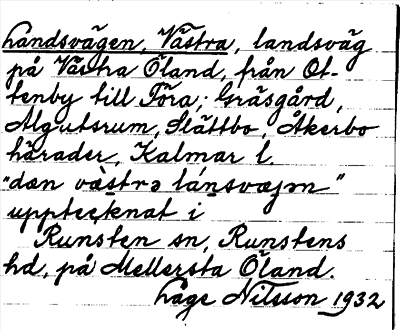 Landsvägen, Västra, landsväg
på Västra Öland, från Ot-
tenby till Föra; Gräsgård,
Algutsrum, Slättbo, Åkerbo
härader, Kalmar l.
"dæn vàstrə lánsvæjən"
upptecknat i
Runsten sn, Runstens
hd, på Mellersta Öland.
Åge Nilsson 1932